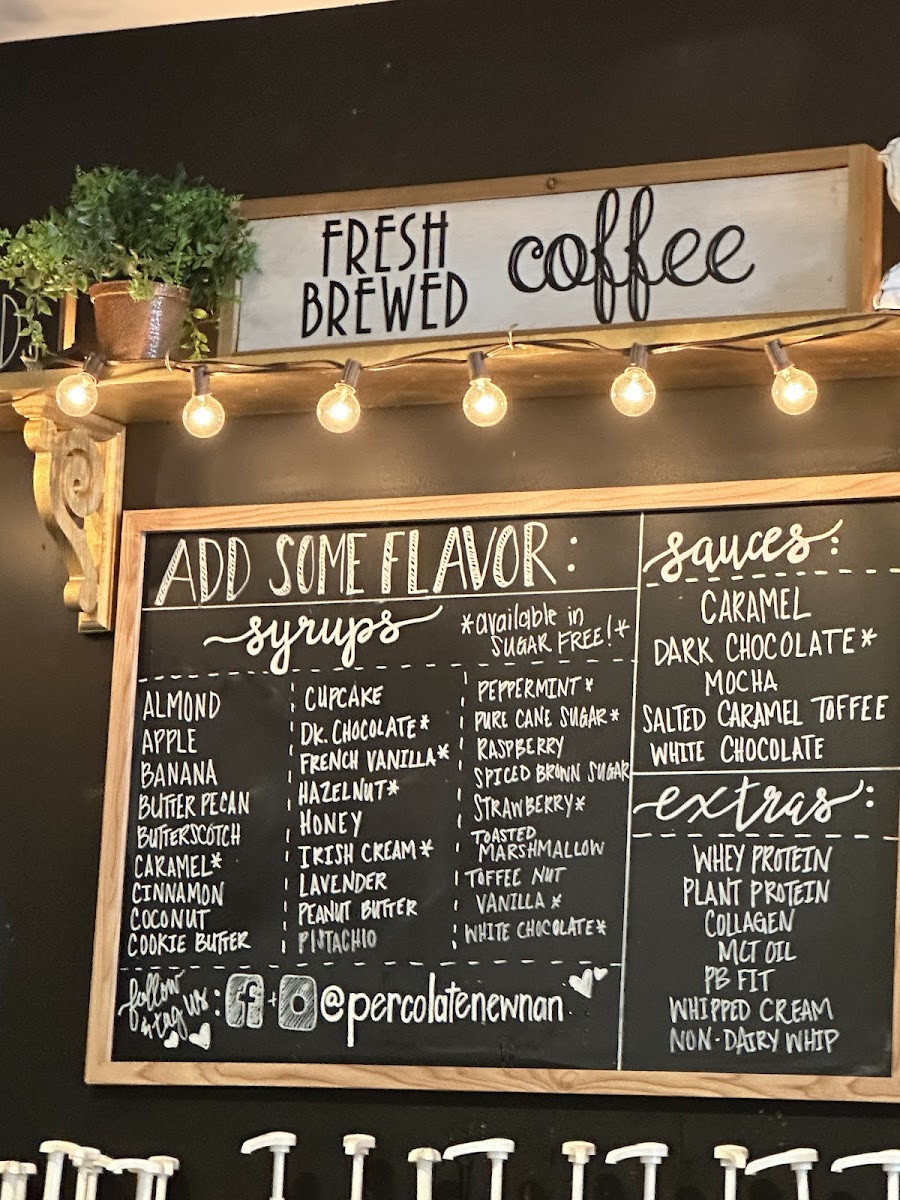 FRESH
BREWED
coffee
ADD SOME FLAVOR:
syrups
*available in
SUGAR FREE!*
ALMOND
APPLE
BANANA
BUTTER PECAN
BUTTERSCOTCH
CARAMEL*
CINNAMON
COCONUT
COOKIE BUTTER
CUPCAKE
DK. CHOCOLATE*
FRENCH VANILLA*
HAZELNUT*
HONEY
IRISH CREAM*
LAVENDER
PEANUT BUTTER
PISTACHIO
PEPPERMINT*
PURE CANE SUGAR*
RASPBERRY
SPICED BROWN SUGAR
STRAWBERRY*
TOASTED
MARSHMALLOW
TOFFEE NUT
VANILLA*
WHITE CHOCOLATE*
follow
n tag us : f + @percolatenewnan
sauces:
CARAMEL
DARK CHOCOLATE*
MOCHA
SALTED CARAMEL TOFFEE
WHITE CHOCOLATE
extras:
WHEY PROTEIN
PLANT PROTEIN
COLLAGEN
MCT OIL
PB FIT
WHIPPED CREAM
NON-DAIRY WHIP